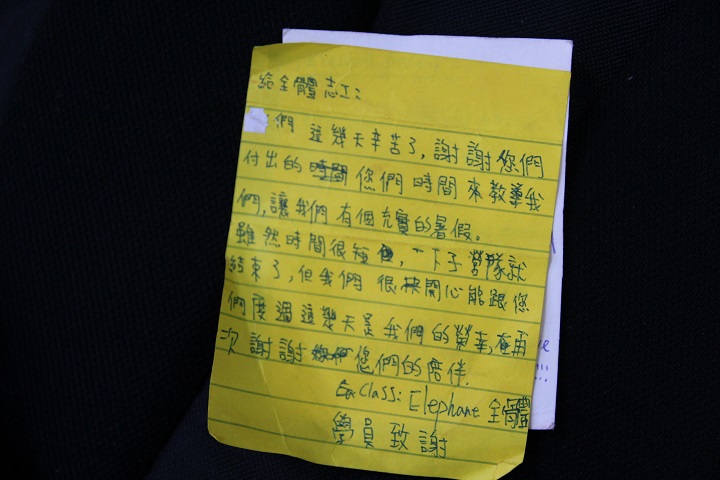 給全體志工:
們 這幾天辛苦了,謝謝您們
付出的時間您們時間來教導我
們,讓我們有個充實的暑假。
雖然時間很短,一下子營隊就
結束了,但我們很開心能跟您
們度過這幾天是我們的榮幸,在再
次謝謝您們的陪伴.
Class: Elephane 全體
學員致謝